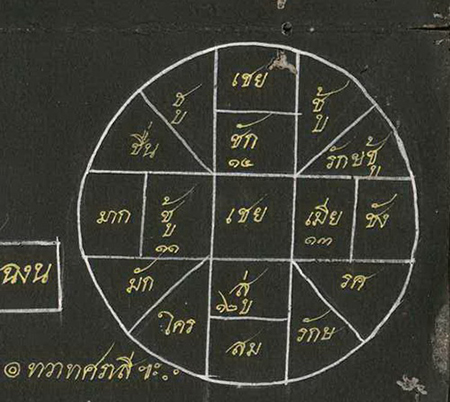 เชย
ชู
ชู้
ชื่น
ชัก
๑๔
รักษชู้
มาก
ชู้
๑๑
เชย
เมีย
๑๓
ชัง
ฉงน
มัก
สู่
๑๒
รศ
ใคร
สม
รักษ
๏ ทวาทศราสี ฯะ